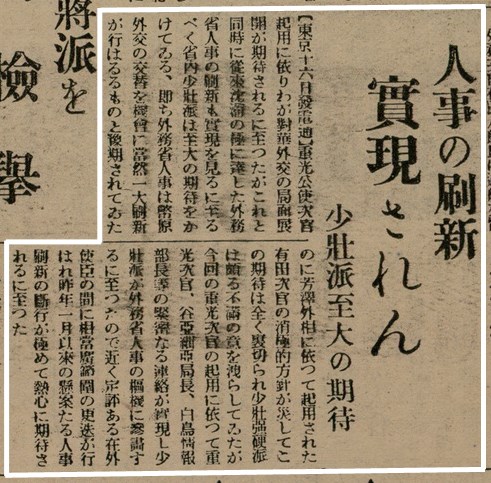 人事の刷新
實現されん
少壯派至大の期待
【東京十六日發電通】重光公使次官
起用に依りわが對華外交の局面展
開が期待されるに至つたがこれと
同時に從來沈滯の極に達した外務
省人事の刷新も實現を見るに至る
べく省內少壯派は至大の期待をか
けてゐる、即ち外務省人事は幣原
外交の交替を機會に當然一大刷新
が行はるるものと豫期されてゐた
のに芳澤外相に依つて起用された
有田次官の消極的方針が災してこ
の期待は全く裏切られ少壯强硬派
は頗る不滿の意を洩らしてゐたが
今回の重光次官の起用に依つて重
光次官、谷亞細亞局長、白鳥情報
部長等の緊密なる連絡が實現し少
壯派が外務省人事の樞機に參畫す
るに至つたので近く定評ある在外
使臣の間に相當廣範圍の更迭が行
はれ昨年一月以來の懸案たる人事
刷新の斷行が極めて熱心に期待さ
れるに至つた
將派を
檢擧